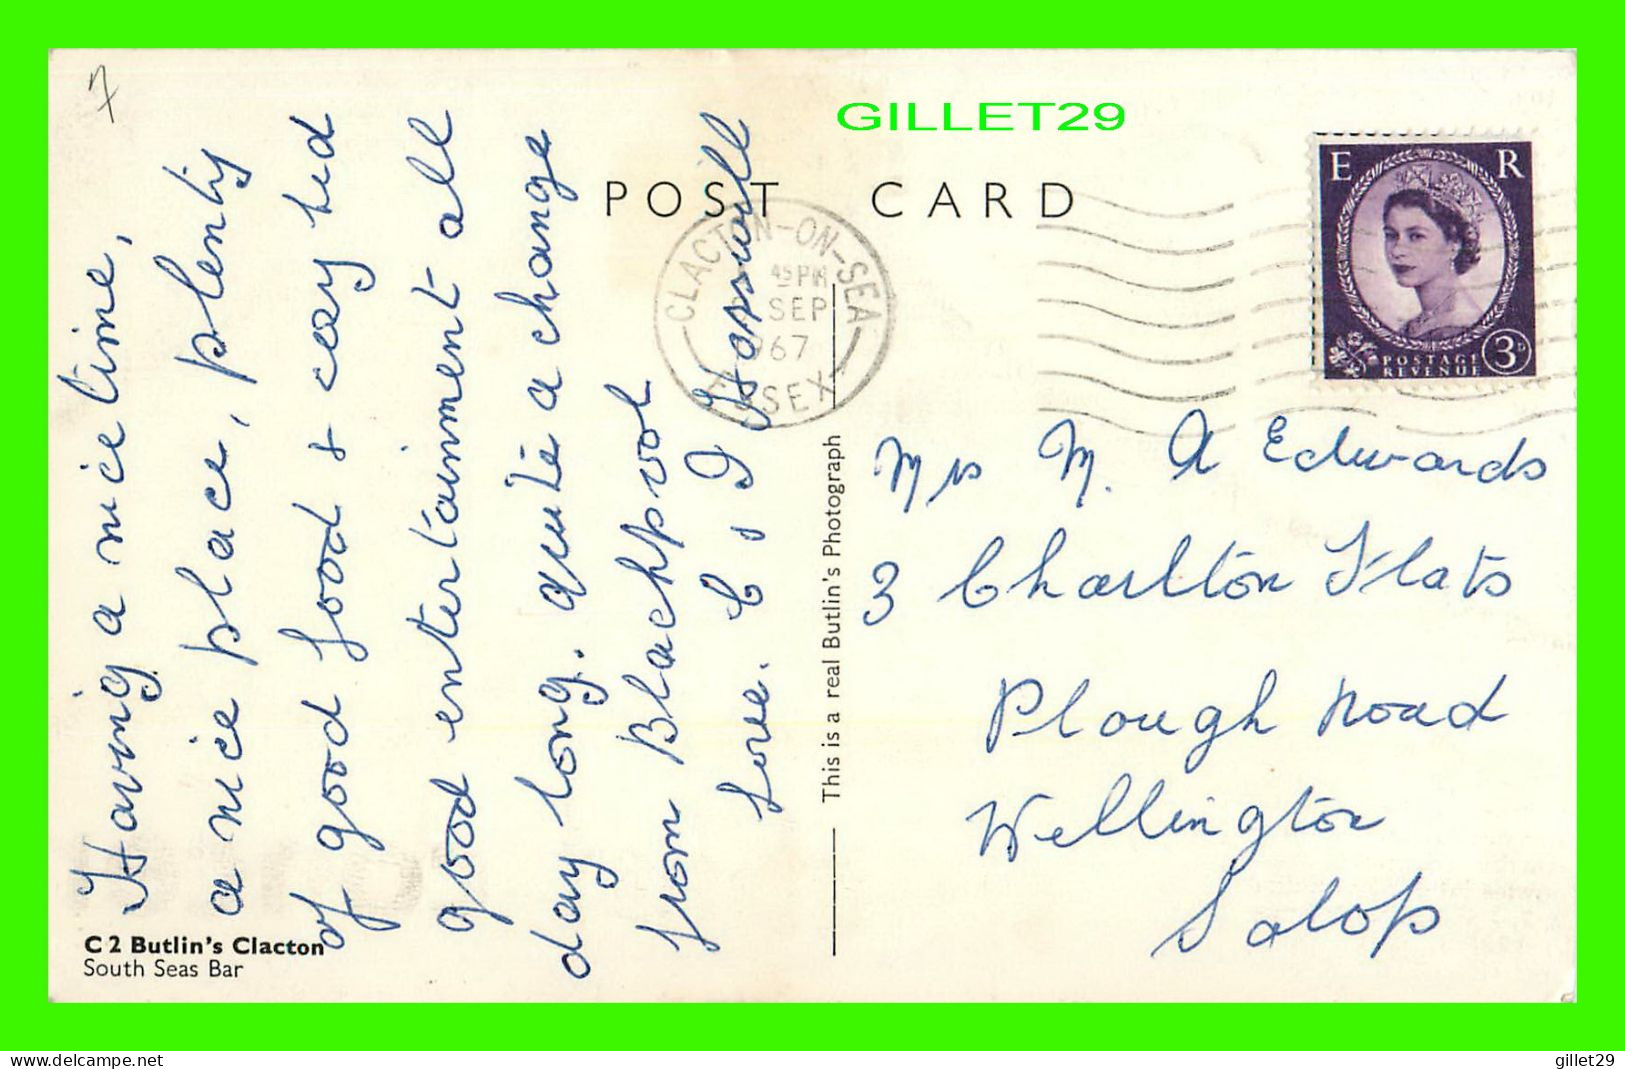 7
GILLET29
POST CARD
CLACTON-ON-SEA
45 PM
SEP
967
ESSEX
E R
POSTAGE
REVENUE
3D
Having a nice time,
a nice place, plenty
of good food &
good entertainment all
day long. quite a change
from Blackpool
love.
This is a real Butlin's Photograph
Mrs M. A Edwards
3 Charlton Flats
Plough Road
Wellington
Salop
C 2 Butlin's Clacton
South Seas Bar
www.delcampe.net
gillet29